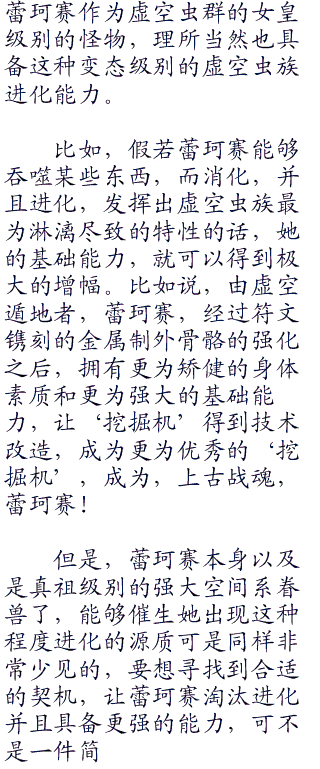 蕾珂赛作为虚空虫群的女皇
级别的怪物，理所当然也具
备这种变态级别的虚空虫族
进化能力。
比如，假若蕾珂赛能够
吞噬某些东西，而消化，并
且进化，发挥出虚空虫族最
为淋漓尽致的特性的话，她
的基础能力，就可以得到极
大的增幅。比如说，由虚空
遁地者，蕾珂赛，经过符文
镌刻的金属制外骨骼的强化
之后，拥有更为矫健的身体
素质和更为强大的基础能
力，让‘挖掘机’得到技术
改造，成为更为优秀的‘挖
掘机’，成为，上古战魂，
蕾珂赛！
但是，蕾珂赛本身以及
是真祖级别的强大空间系眷
兽了，能够催生她出现这种
程度进化的源质可是同样非
常少见的，要想寻找到合适
的契机，让蕾珂赛淘汰进化
并且具备更强的能力，可不
是一件简